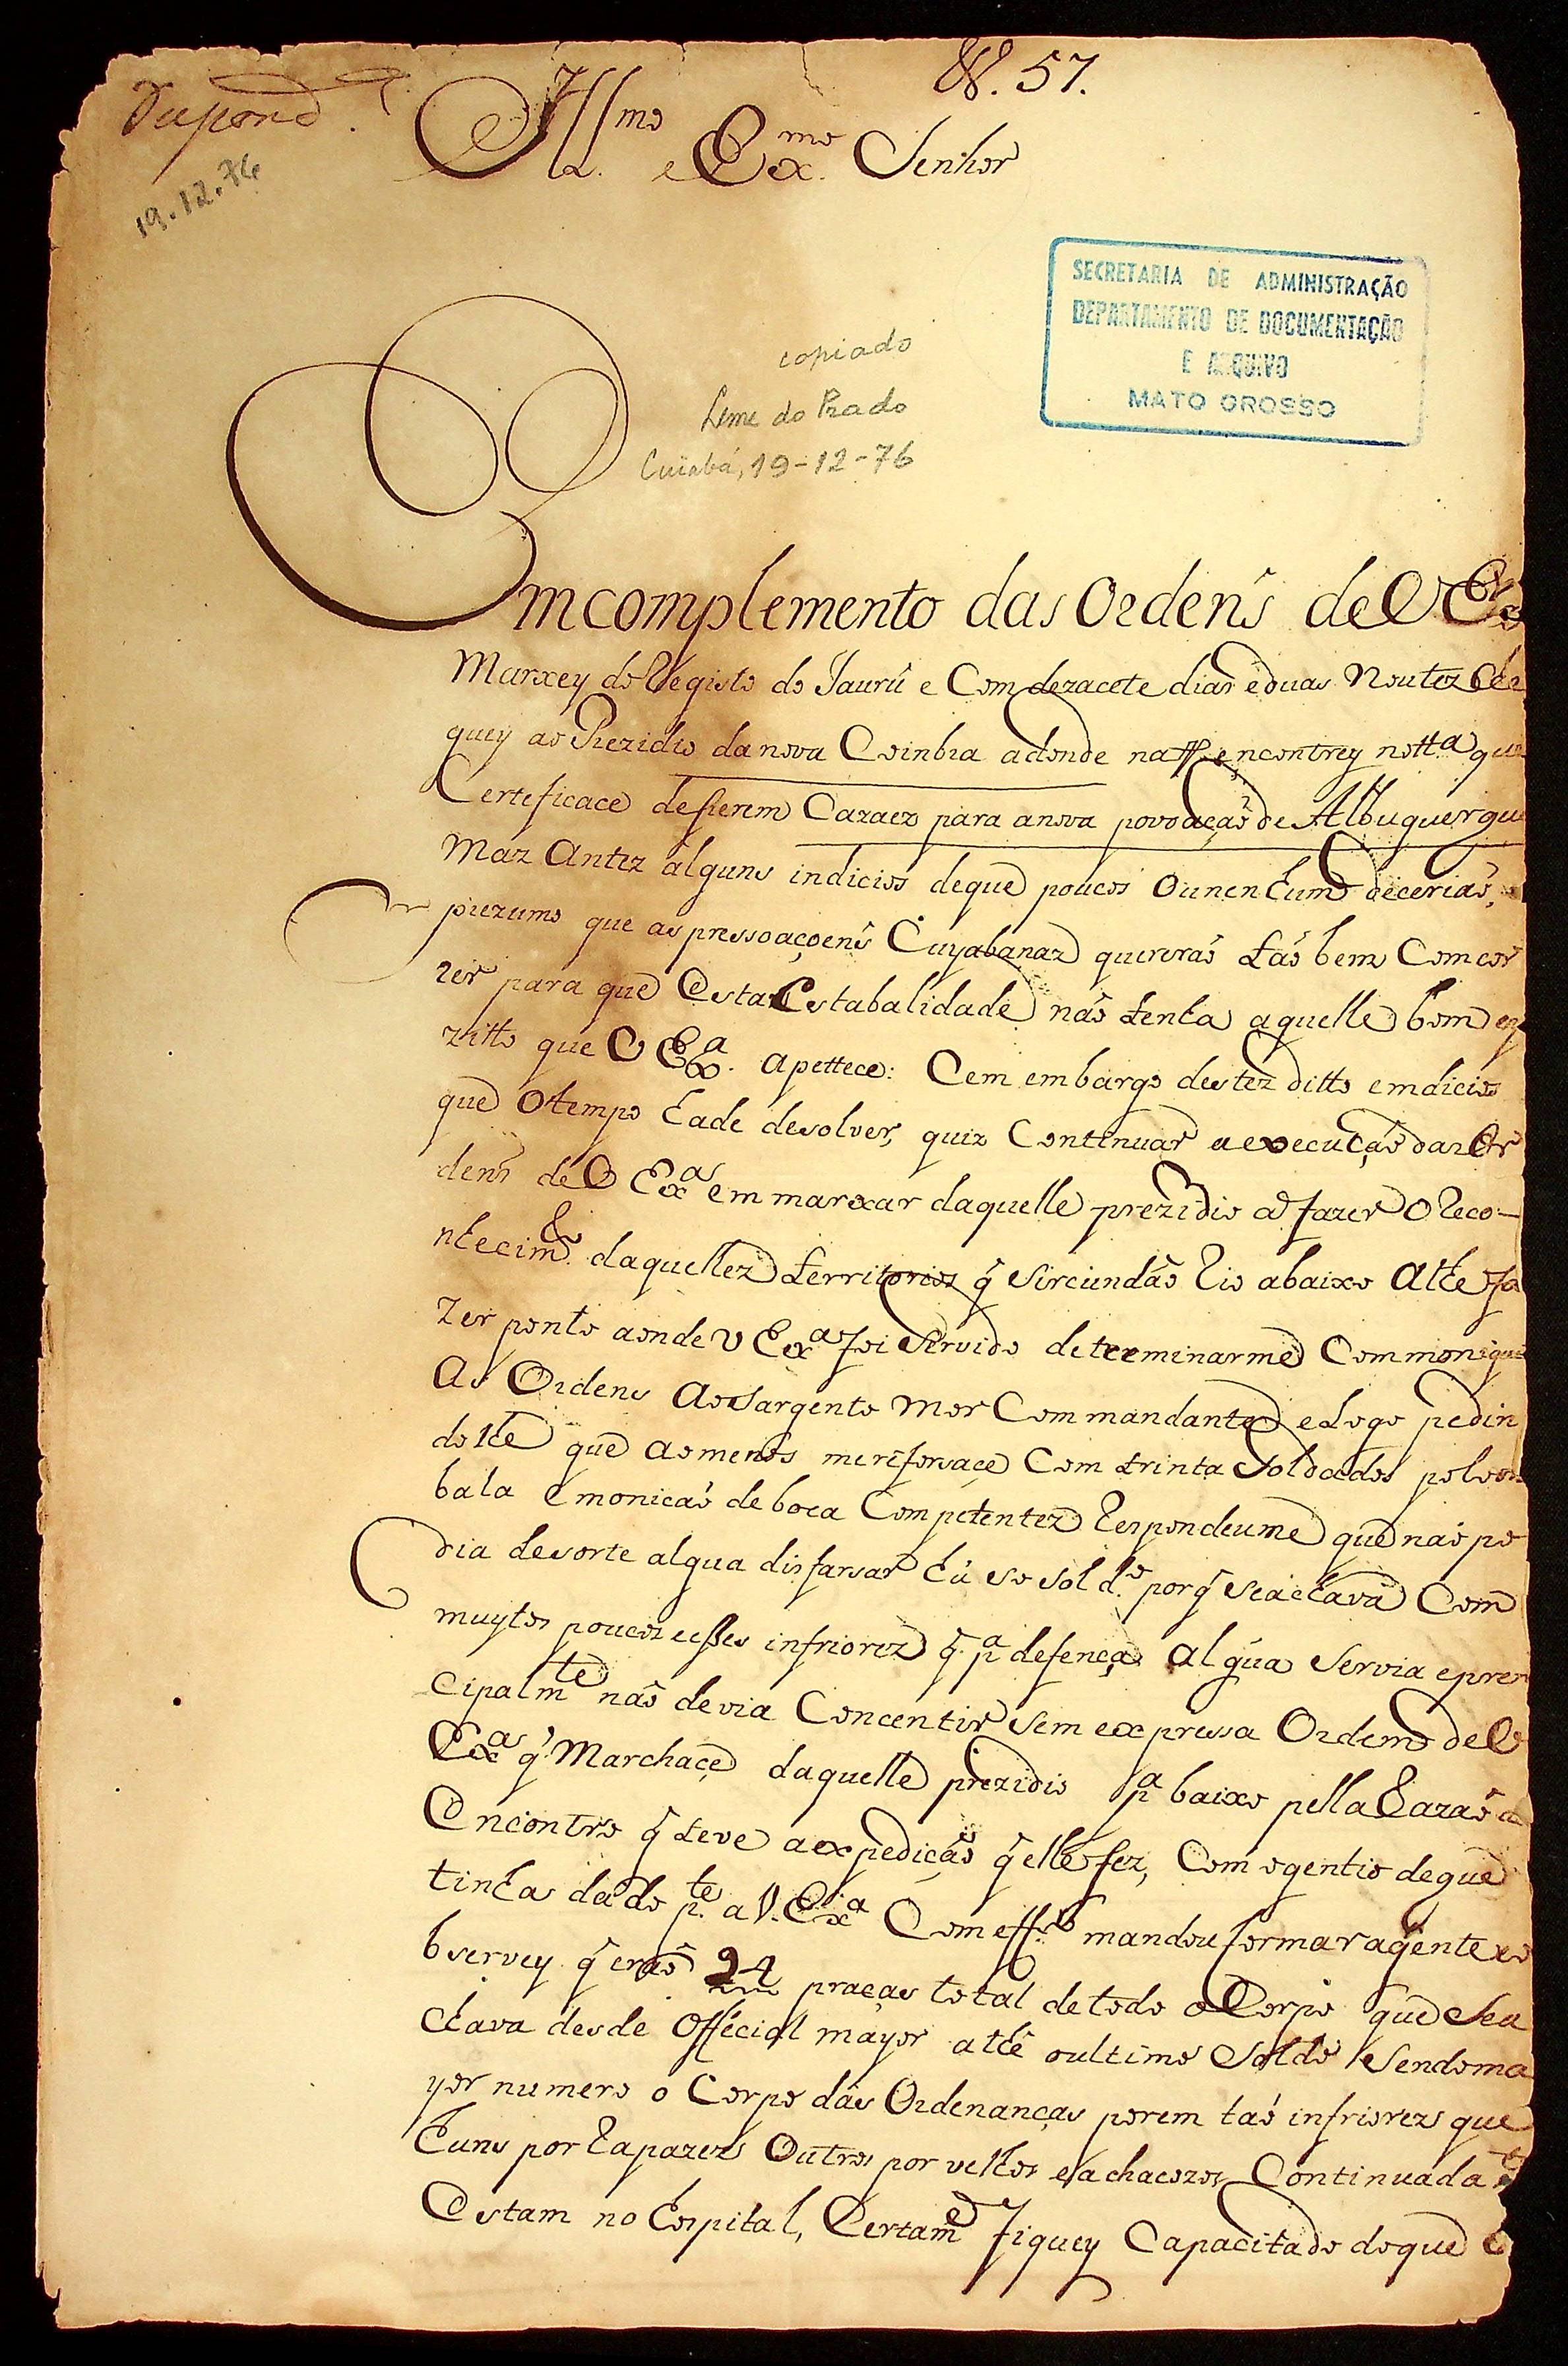 N. 57.
Respond.ª
19.12.76
Illmo e Exmo Senhor
SECRETARIA DE ADMINISTRAÇÃO
DEPARTAMENTO DE DOCUMENTAÇÃO
E ARQUIVO
MATO GROSSO
copiado
Leme do Prado
Cuiabá, 19-12-76
Em complemento das Ordens de V Exª
Marxey do Registo do Jaurú e Com dezacete dias e duas Noutez Che
guey ao Prezidio da nova Coinbra adonde naõ encontrey notta que
Certeficace de serem Cazaez para a nova povoaçaõ de Albuquerque
Maz Antez alguns indicios de que poucos ou nenhums deceriaõ,
prezumo que as pressoaçoens Cuyabanaz quereraõ taõ bem Comcor
rer para que Esta Estabalidade naõ tenha aquelle bom ex
zitto que V Exª. apettece: Cem embargo destez ditto emdicios
que o tempo hade desolver, quiz Continuar a execuçaõ daz Or
dens de V Exª em marxar daquelle prezidio a fazer o Reco-
nhecimto. daquellez territorios q̃ Sircundaõ Rio abaixo athe fa
zer ponto aonde V Exª foi Servido determinarme Commoniquei
As Ordens Ao Sargento Mor Commandante e Logo pedin
do lhe que ao menos me reforsace Com trinta Soldados polvora
bala e moniçaõ de boca Competentez Respondeume que naõ po
dia de sorte algua disfarsar hú so sold.º porq̃ se achava Com
muytos poucoz e esses infriorez q̃ pª defença algúa Servia e pren
cipalmte naõ devia Concentir sem expressa Ordem de V
Exª q̃ Marchace daquelle prezidio pª baixo pella Razaõ do
Encontro q̃ teve a expediçaõ q̃ elle fez, Com o gentio de que
tinha dado pte a V. Exª Com effto mandou formar a gente e o
bservey q̃ eraõ 94 praças total de todo o Corpo que Sea
chava desde Official mayor athe o ultimo Soldº Sendo ma
yor numero o Corpo das Ordenanças porem taõ infriorez que
huns por Rapazes Outros por velhos e achacozos Continuada
Estam no hospital, CertamE fiquey Capacitado do que